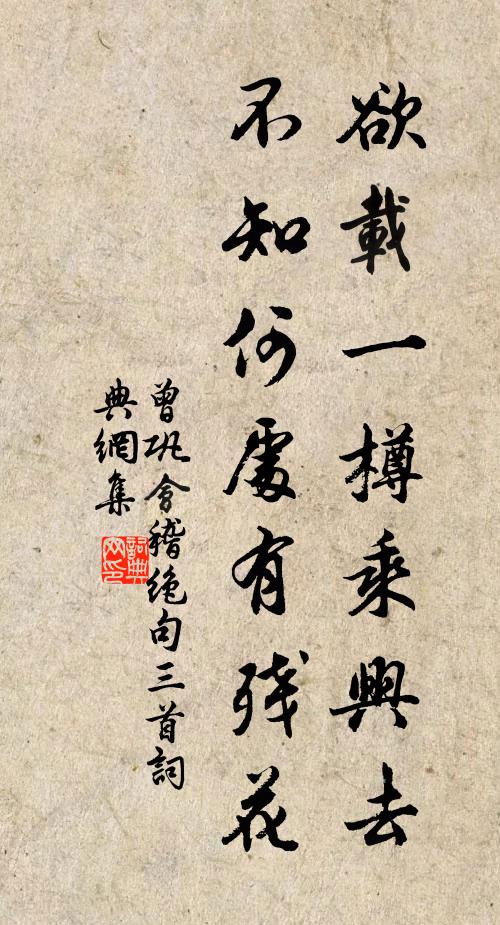 欲載一樽乘興去
不知何處有殘花
曾鞏會稽絶句三首詞
典網集
詞典
网印